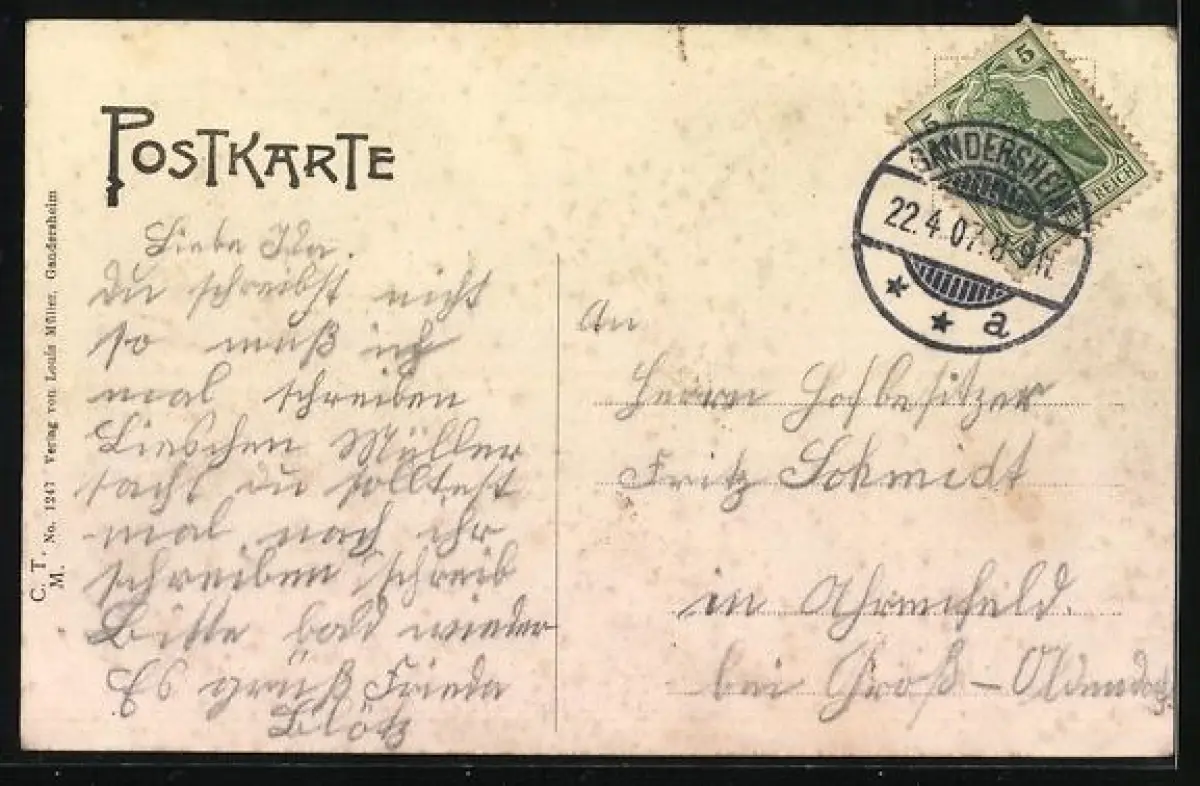 POSTKARTE
5
5
REICH
GANDERSHEIM
22.4.07. 8-9N.
* * a
C. T. M. No. 1247 Verlag von Louis Müller, Gandersheim
Liebe Ida.
du schreibst nicht
so muß ich
mal schreiben
Lieschen Müller
sacht du solltest
mal nach ihr
schreiben schreib
Bitte bald wieder
Es grüß Frieda
An
Herrn Hofbesitzer
Fritz Schmidt
in Ahrenfeld.
bei Groß-Oldendorf